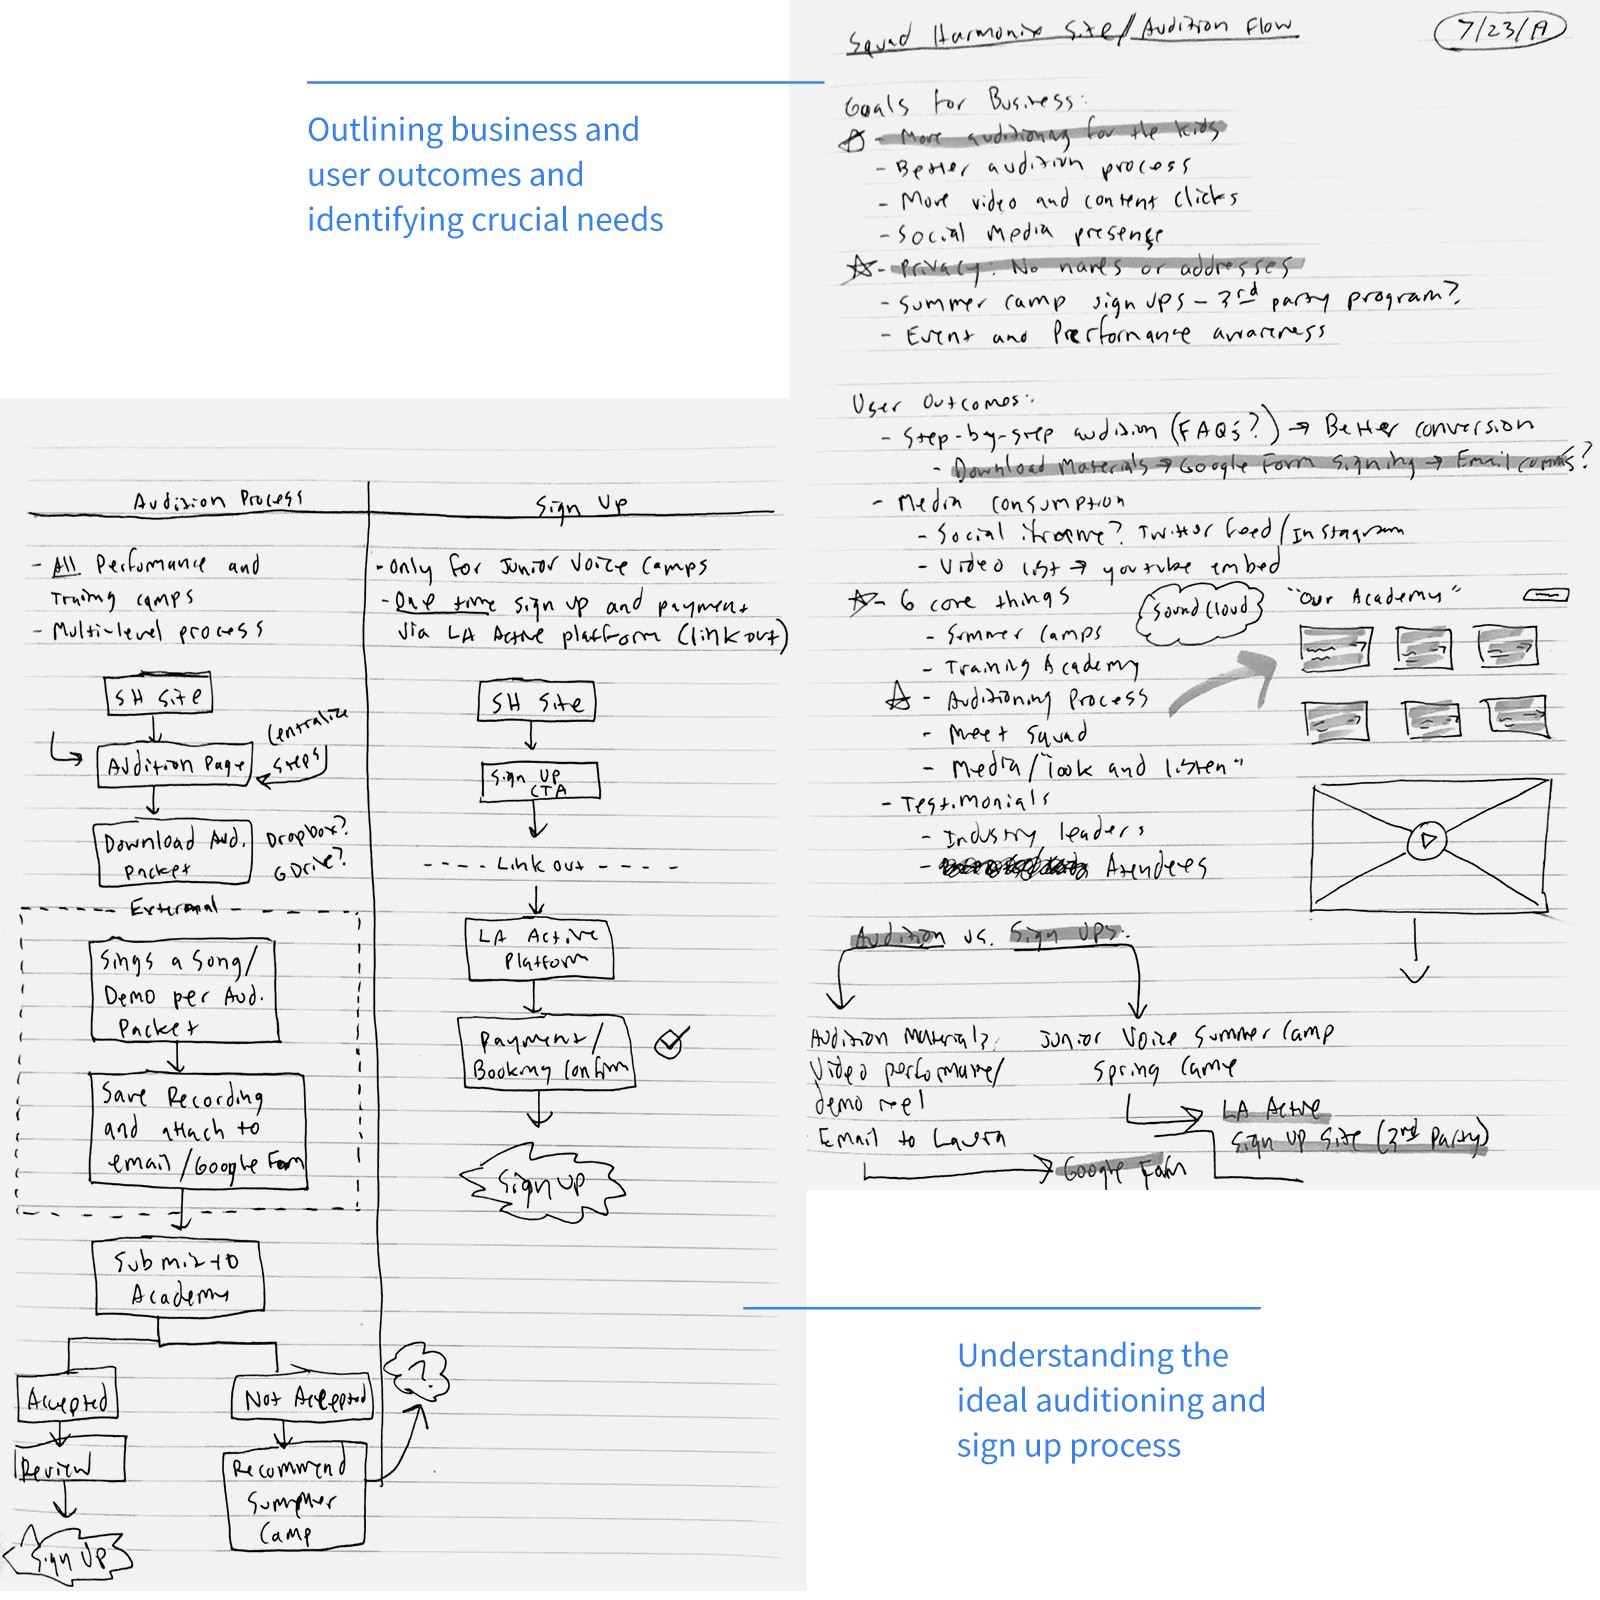 Outlining business and
user outcomes and
identifying crucial needs
Squad Harmonix Site/Audition Flow
7/23/19
Goals for Business:
- More auditioning for the kids
- Better audition process
- More video and content clicks
- Social Media presence
- Privacy: No names or addresses
- Summer camp sign ups - 3rd party program?
- Event and Performance awareness
User Outcomes:
- Step-by-step audition (FAQs?) → Better conversion
- Download Materials → Google Form signing → Email comms?
- Media consumption
- Social iframe? Twitter feed/Instagram
- Video list → youtube embed
- 6 core things
- Summer Camps
- Training Academy
- Auditioning Process
- Meet Squad
- Media/"look and listen"
- Testimonials
- Industry leaders
- Attendees
Soundcloud
"Our Academy"
Audition vs. Sign Ups:
Audition Materials:
Video performance/
demo reel
Email to Laura
→ Google Form
Junior Voice Summer Camp
Spring Camp
LA Active
Sign Up Site (3rd Party)
Audition Process
- All Performance and
Training camps
- Multi-level process
SH Site
Audition Page
Centralize
steps
Download Aud.
Packet
Dropbox?
GDrive?
External
Sings a Song/
Demo per Aud.
Packet
Save Recording
and attach to
email/Google Form
Submit to
Academy
Accepted
Review
Sign Up
Not Accepted
Recommend
Summer
Camp
?
Sign Up
- Only for Junior Voice Camps
- One time sign up and payment
via LA Active platform (link out)
SH Site
Sign Up
CTA
Link out
LA Active
Platform
Payment/
Booking Confirm
Sign Up
Understanding the
ideal auditioning and
sign up process